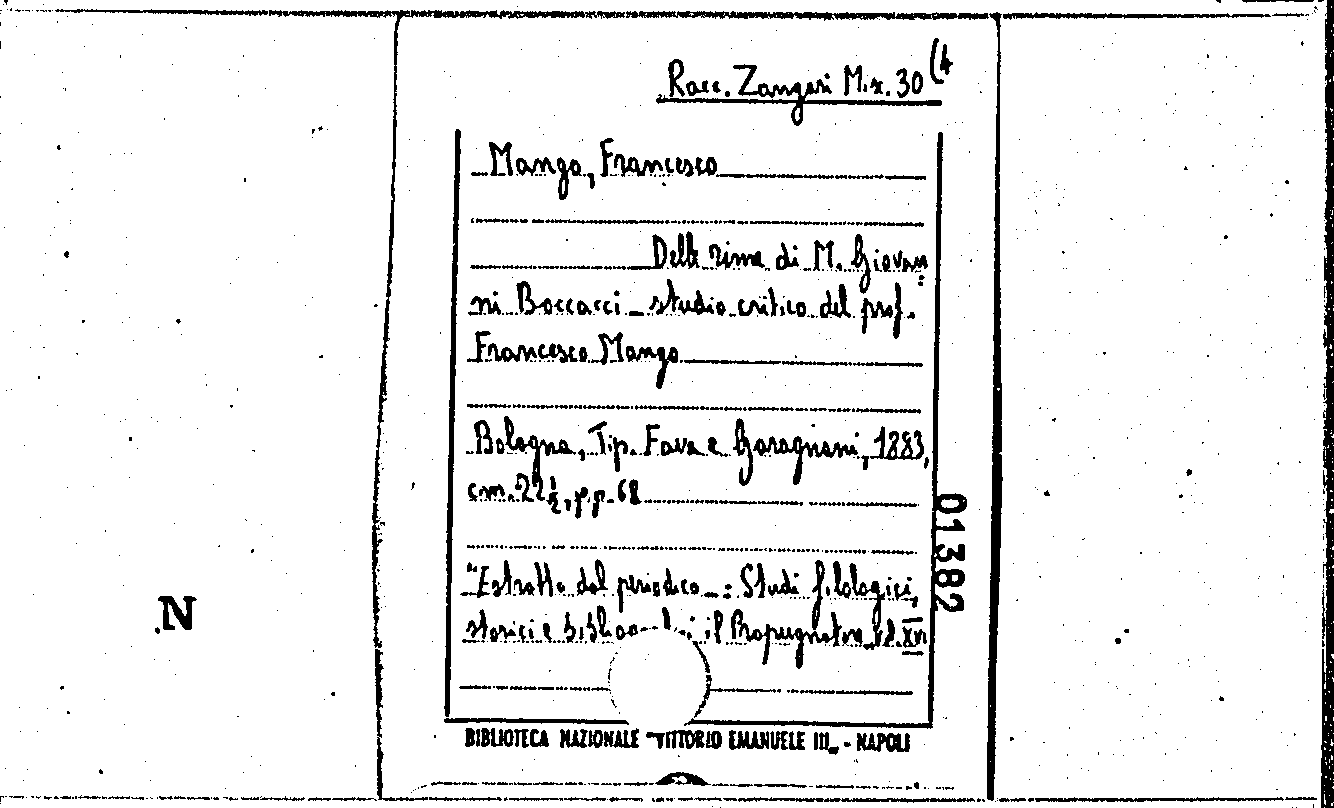 Racc. Zangari Mix. 30 (4
Mango, Francesco
Delle rime di M. Giovan
ni Boccacci - studio critico del prof.
Francesco Mango
Bologna, Tip. Fava e Garagnani, 1883,
cm. 22 1/2, pp. 68
"Estratto dal periodico - : Studi filologici,
storici e il Propugnatore, vol. XVI
01382
N
BIBLIOTECA NAZIONALE "VITTORIO EMANUELE III„ - NAPOLI